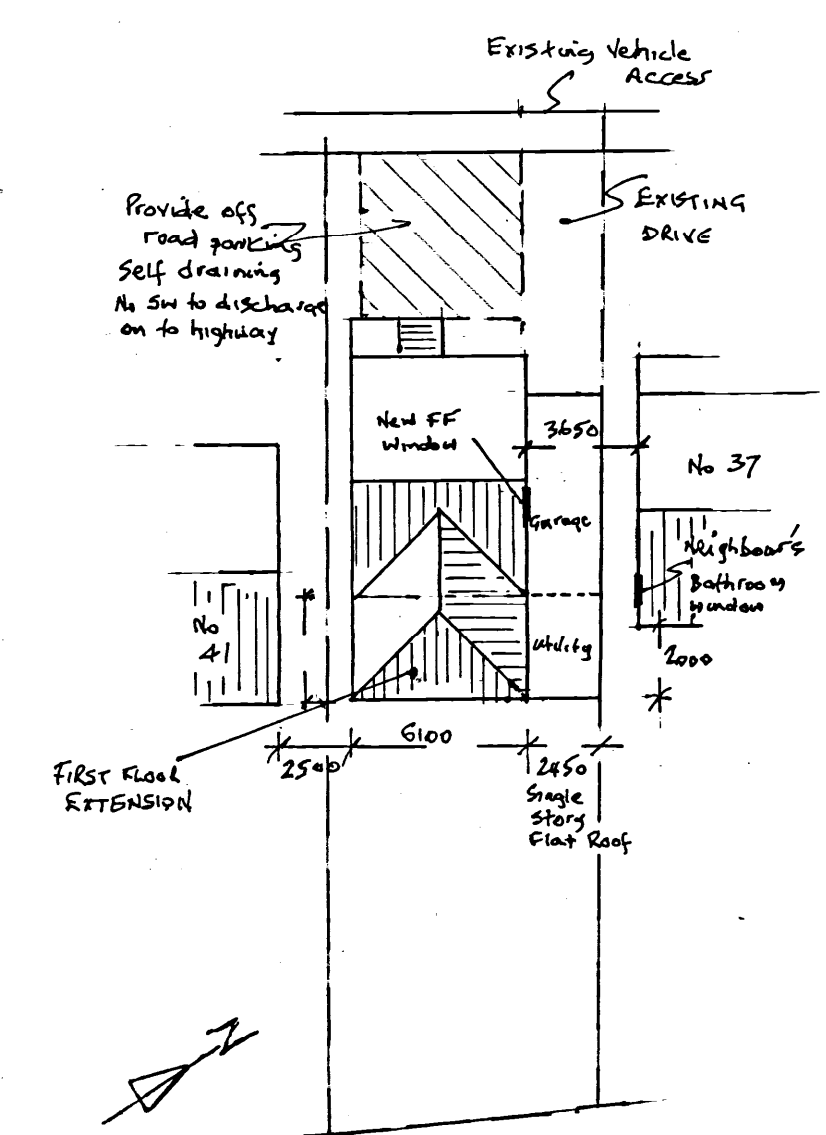 Existing Vehicle
Access
Provide off
road parking
Self draining
No SW to discharge
on to highway
EXISTING
DRIVE
New FF
Window
3650
No 37
Garage
Neighbour's
Bathroom
window
No
41
Utility
2000
6100
2500
2450
FIRST FLOOR
EXTENSION
Single
Story
Flat Roof
N